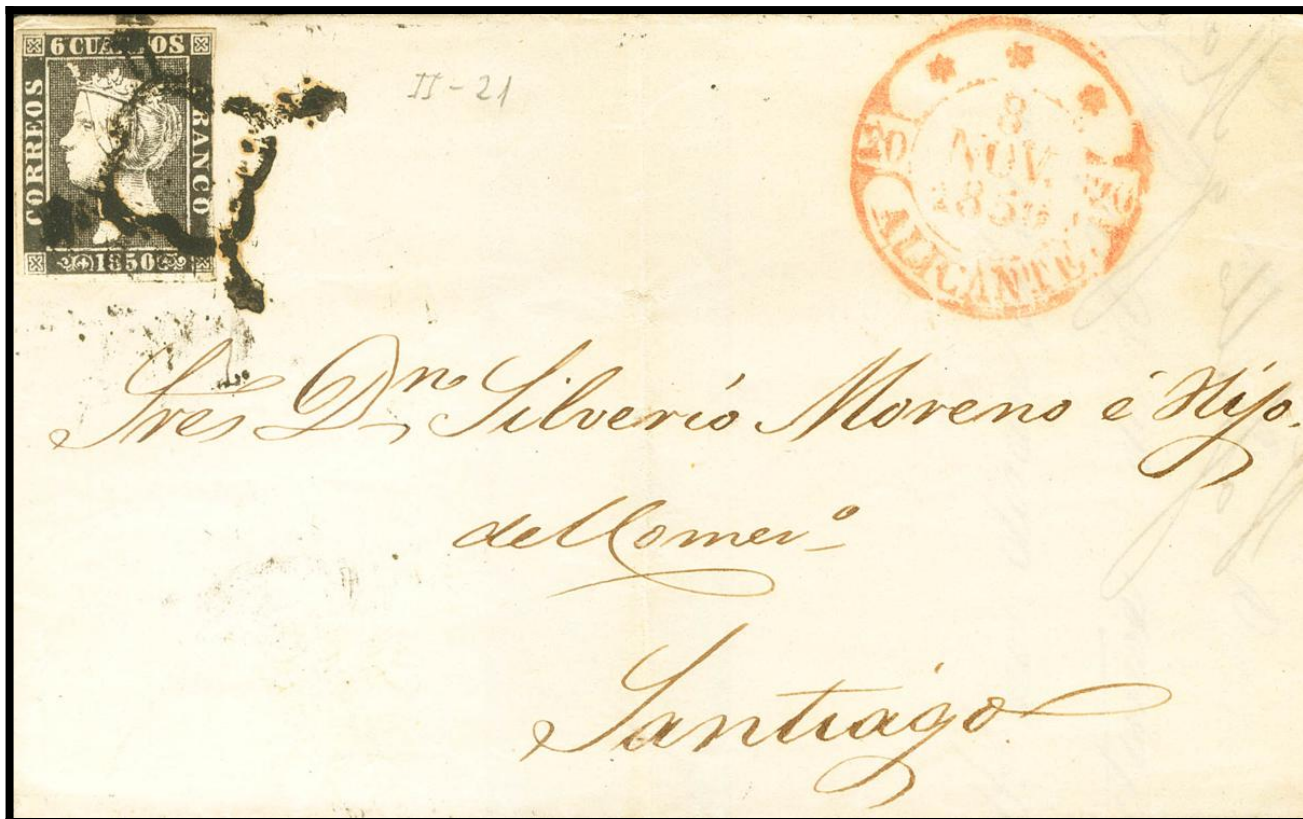 6 CUARTOS
CORREOS
FRANCO
1850
II-21
8
NOV.
1850
20
20
ALICANTE.
Sres Dn Silverio Moreno é Hijo.
del Comero
Santiago